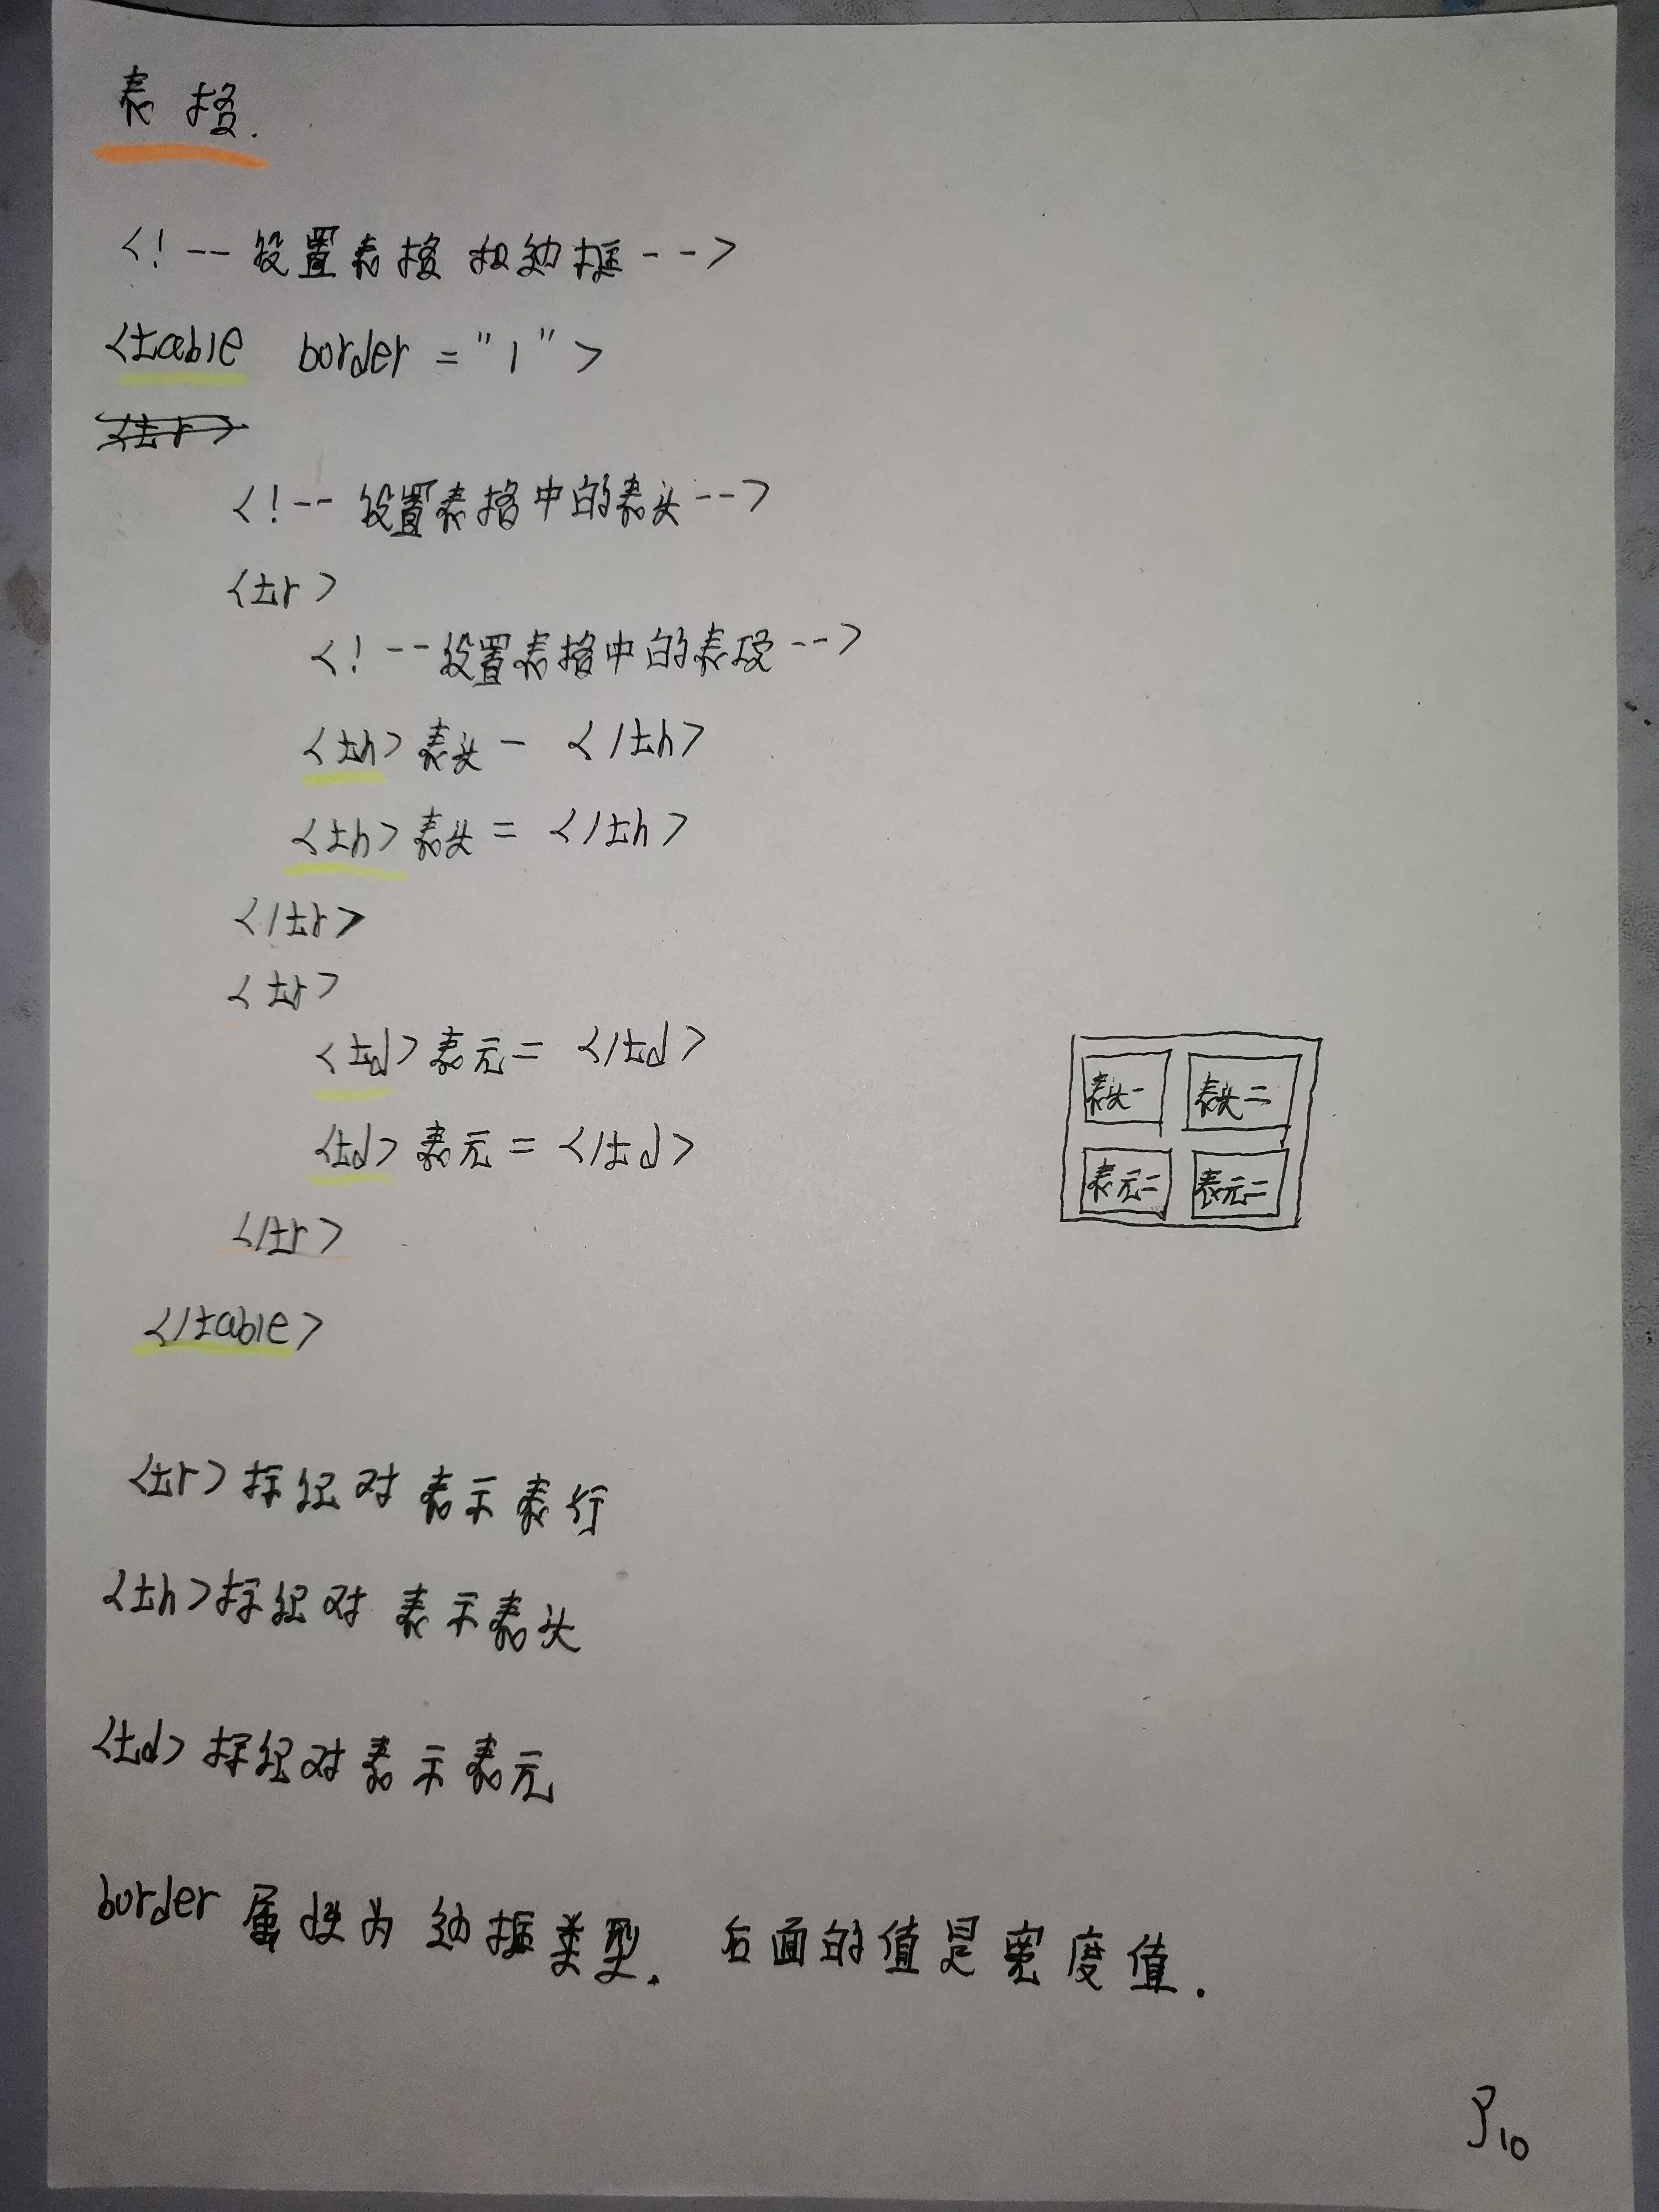 表格.
<!--设置表格和边框-->
<table border="1">
<tr>
<!--设置表格中的表头-->
<tr>
<!--设置表格中的表段-->
<th>表头一</th>
<th>表头二</th>
</tr>
<tr>
<td>表元二</td>
<td>表元二</td>
</tr>
</table>
表头一 表头二
表元二 表元二
<tr>标织对表示表行
<th>标织对表示表头
<td>标织对表示表元
border属性为边框类型.后面的值是宽度值.
P10